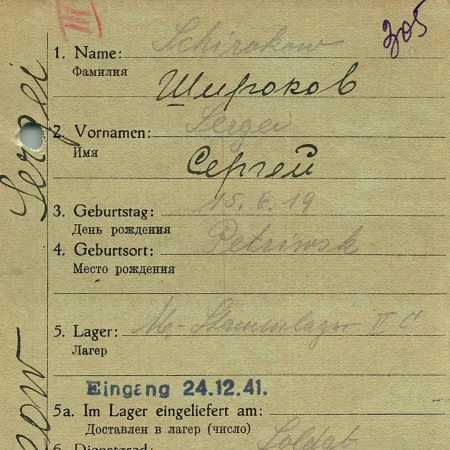 III
305
1. Name: Schirokow
Фамилия
Широков
2. Vornamen: Sergei
Имя
Сергей
3. Geburtstag: 15. 6. 19
День рождения
4. Geburtsort: Petriwsk
Место рождения
5. Lager: M.-Stammlager II C
Лагер
Eingang 24.12.41.
5a. Im Lager eingeliefert am:
Доставлен в лагер (число)
6. Dienstgrad: Soldat
Sergei